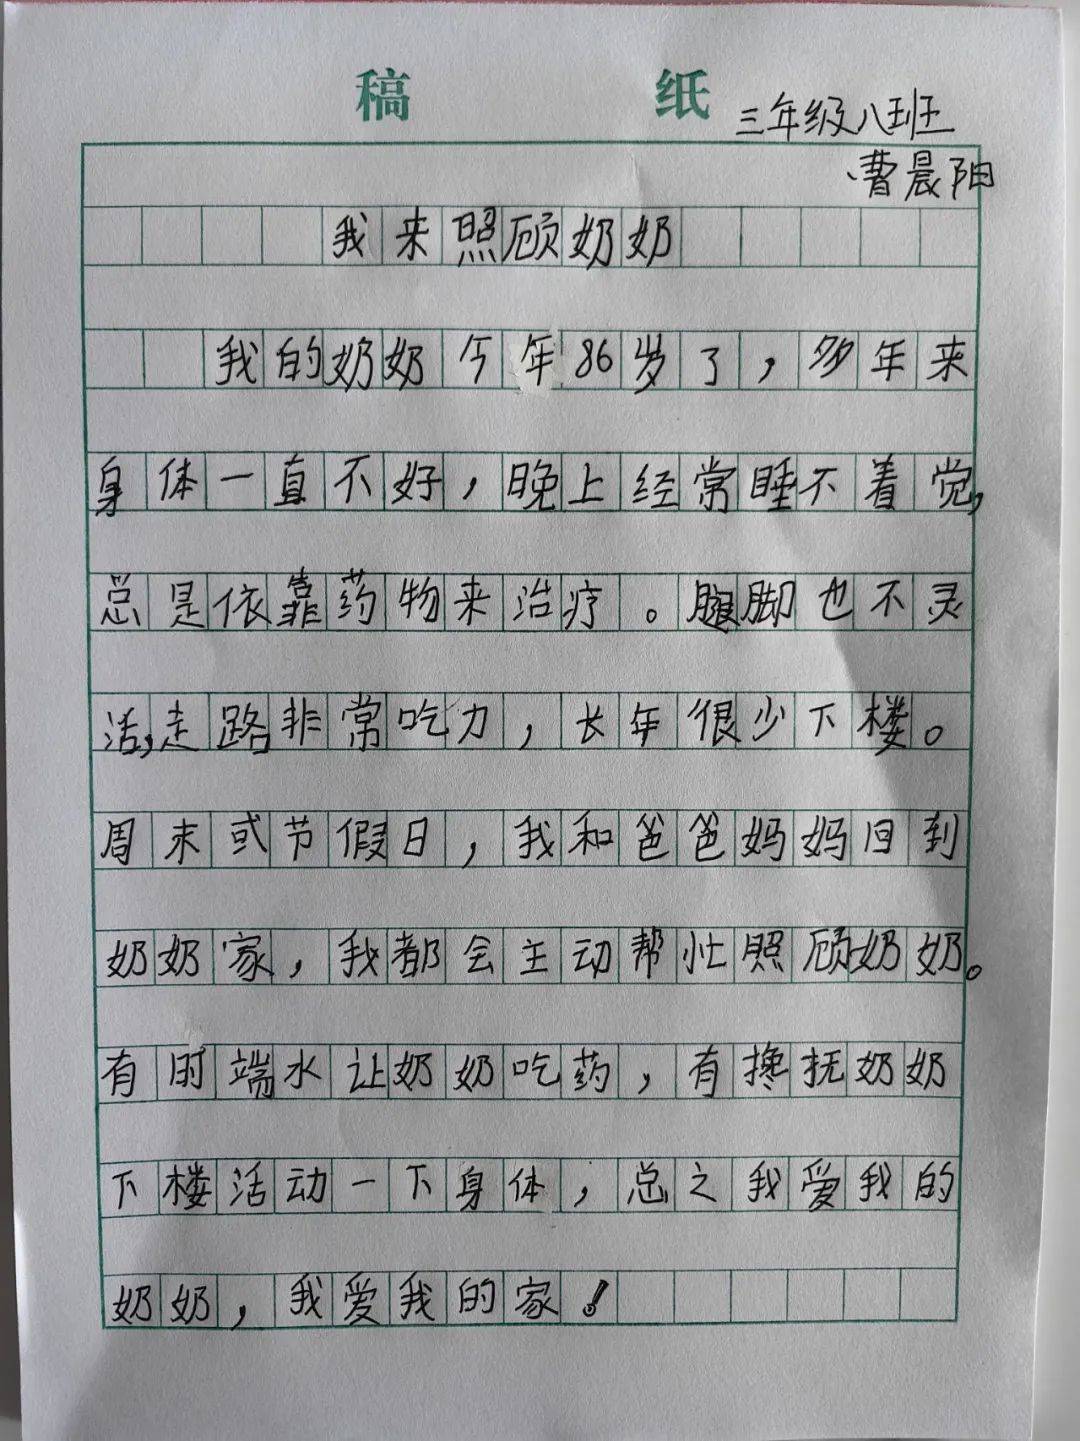 稿 纸
三年级八班
曹晨阳
我来照顾奶奶
我的奶奶今年86岁了，多年来
身体一直不好，晚上经常睡不着觉，
总是依靠药物来治疗。腿脚也不灵
活，走路非常吃力，长年很少下楼。
周末或节假日，我和爸爸妈妈回到
奶奶家，我都会主动帮忙照顾奶奶。
有时端水让奶奶吃药，有搀抚奶奶
下楼活动一下身体，总之我爱我的
奶奶，我爱我的家！